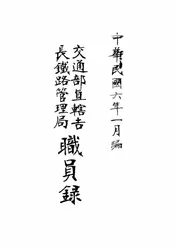 中華民國六年一月編
交通部直轄吉
長鐵路管理局
職員錄